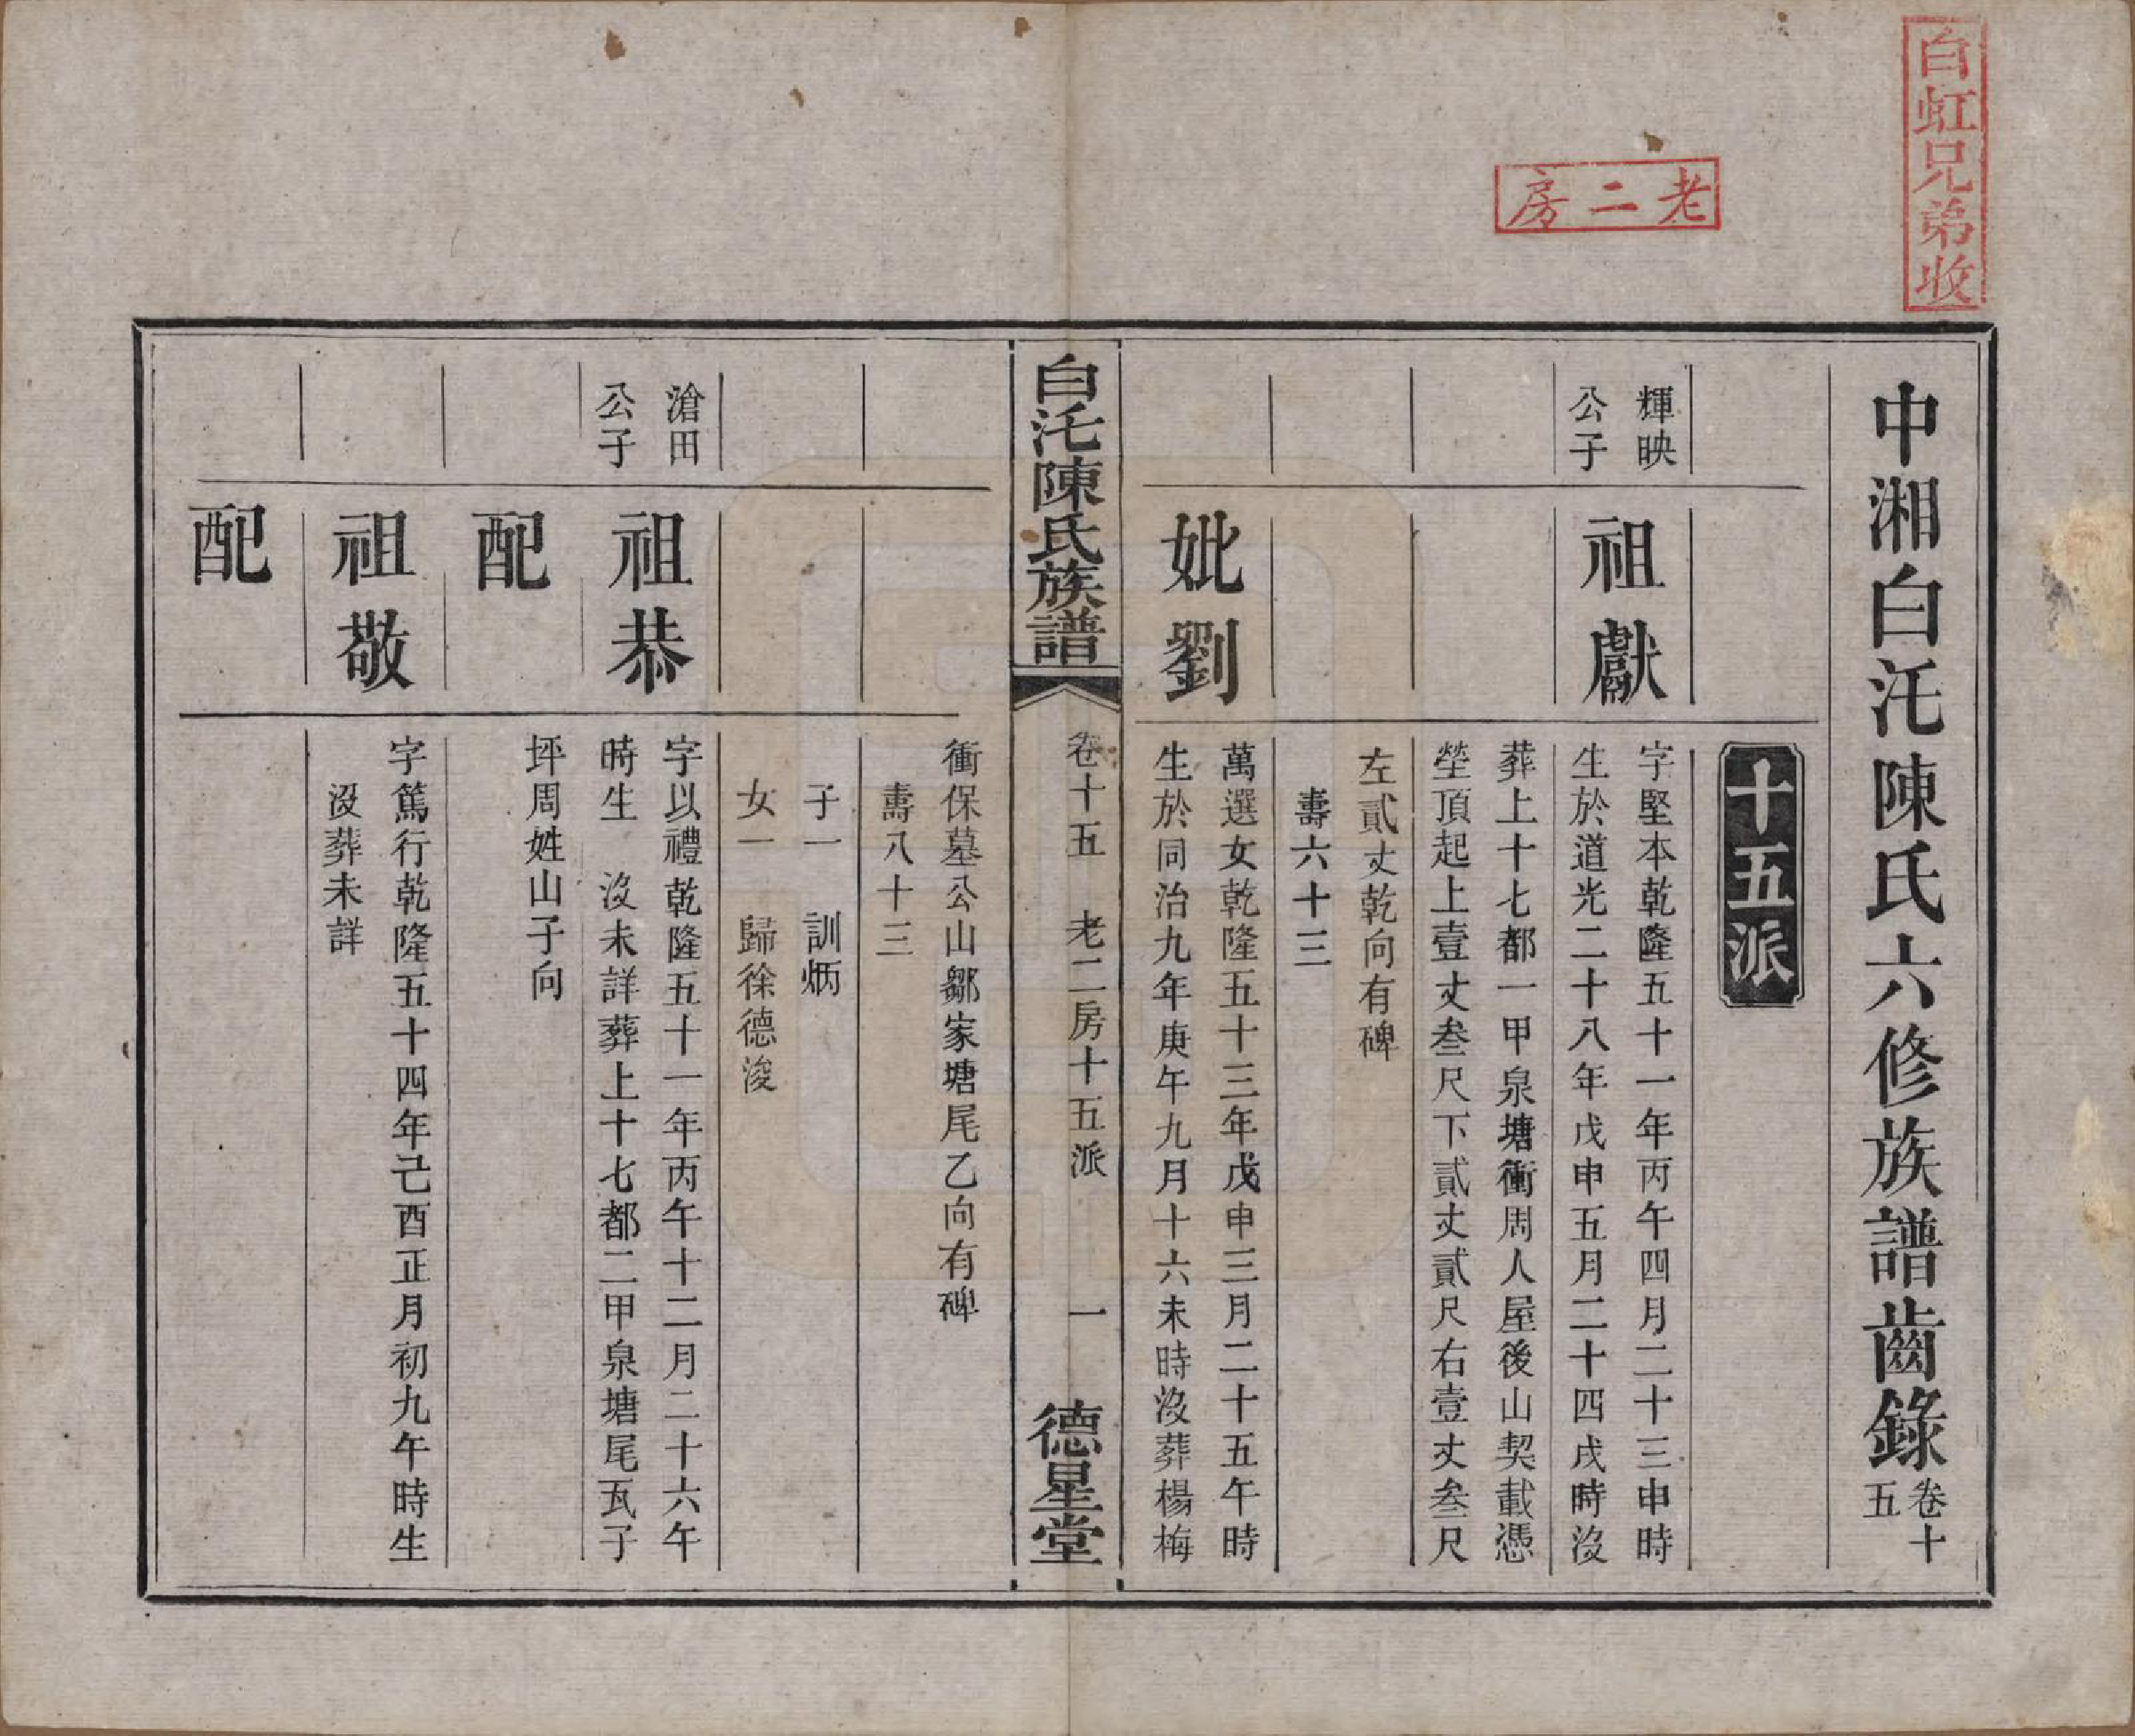 白虹兄弟收
老二房
中湘白沱陳氏六修族譜齒錄
卷十
五
十五派
輝映
公子
祖獻
字堅本乾隆五十一年丙午四月二十三申時
生於道光二十八年戊申五月二十四戌時沒
葬上十七都一甲泉塘衝周人屋後山契載憑
塋頂起上壹丈叁尺下貳丈貳尺右壹丈叁尺
左貳丈乾向有碑
壽六十三
妣劉
萬選女乾隆五十三年戊申三月二十五午時
生於同治九年庚午九月十六未時沒葬楊梅
白沱陳氏族譜
卷十五 老二房十五派 一
德星堂
衝保墓公山鄒家塘尾乙向有碑
壽八十三
子一 訓炳
女一 歸徐德浚
滄田
公子
祖恭
字以禮乾隆五十一年丙午十二月二十六午
時生 沒未詳葬上十七都二甲泉塘尾瓦子
坪周姓山子向
配
祖敬
字篤行乾隆五十四年己酉正月初九午時生
沒葬未詳
配